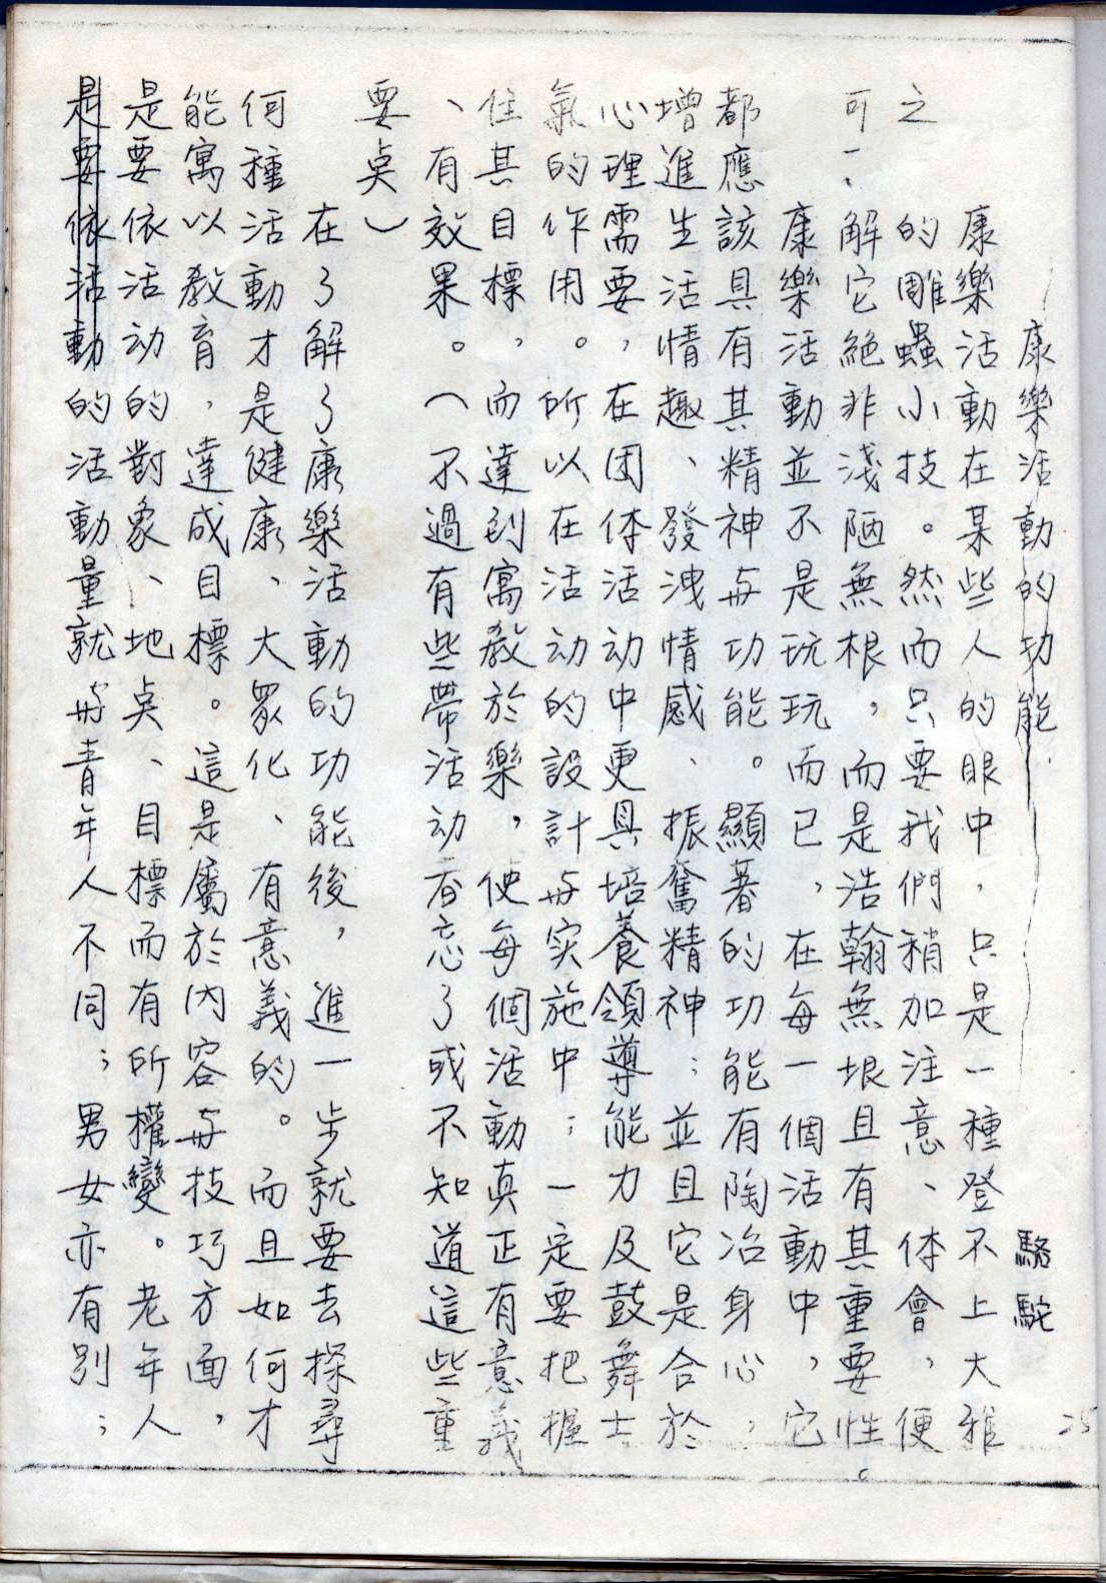 康樂活動的功能 駱駝
25
康樂活動在某些人的眼中，只是一種登不上大雅
之的雕蟲小技。然而只要我們稍加注意、体會，便
可一、解它絕非淺陋無根，而是浩翰無垠且有其重要性。
康樂活動並不是玩玩而已，在每一個活動中，它
都應該具有其精神与功能。顯著的功能有陶冶身心，
增進生活情趣、發洩情感、振奮精神；並且它是合於
心理需要，在团体活动中更具培養領導能力及鼓舞士
氣的作用。所以在活动的設計与实施中；一定要把握
住其目標，而達到寓教於樂，使每個活動真正有意義
、有效果。（不過有些帶活动者忘了或不知道這些重
要奌）
在了解了康樂活動的功能後，進一步就要去探尋
何種活動才是健康、大眾化、有意義的。而且如何才
能寓以教育，達成目標。這是屬於內容与技巧方面，
是要依活动的對象、地奌、目標而有所權變。老年人
是要依活動的活動量就与青年人不同；男女亦有別；